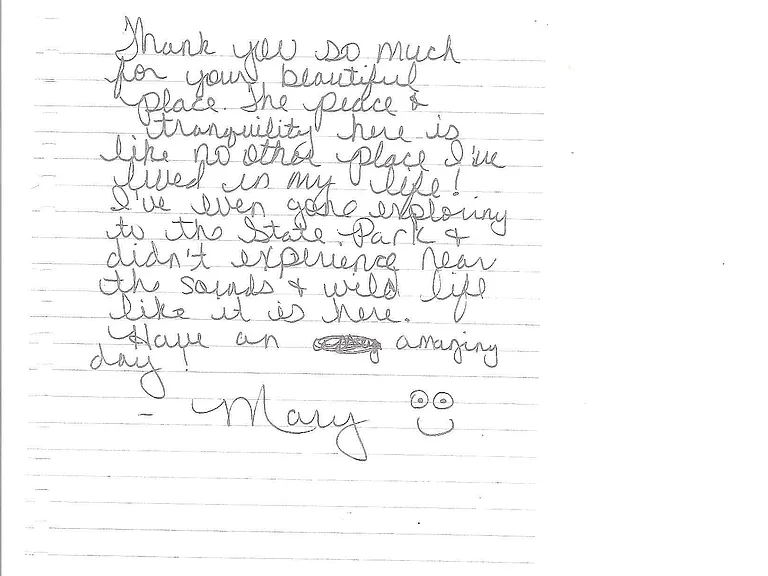 Thank you so much
for your beautiful
place. The peace &
tranquility here is
like no other place I've
lived in my life!
I've even gone exploring
to the State Park &
didn't experience near
the sounds & wild life
like it is here.
Have an amazing
day!
- Mary